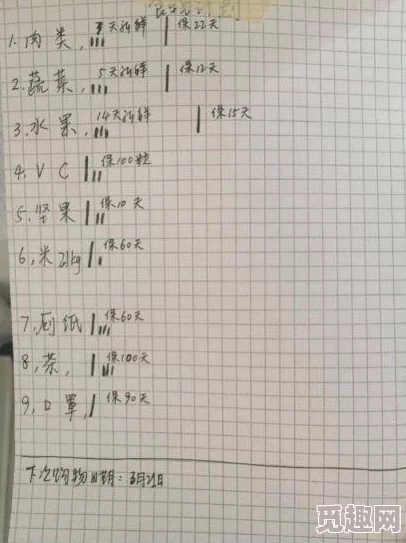 1. 肉类, 天新鲜 保22天
2. 蔬菜, 5天新鲜 保12天
3. 水果, 14天新鲜 保15天
4. VC 保100粒
5. 坚果 保10天
6, 米21kg 保60天
7, 厕纸 保60天
8, 茶, 保100天
9, 口罩, 保90天
下次购物日期: 3月21日
觅趣网